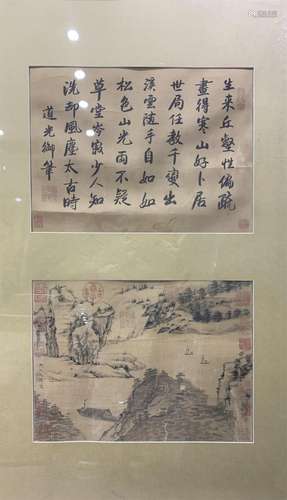 生来丘壑性偏疏
畫得寒山好卜居
世局任教千變出
溪雲隨手自如如
松色山光兩不疑
草堂岑寂少人知
洗却風塵太古時
道光御筆